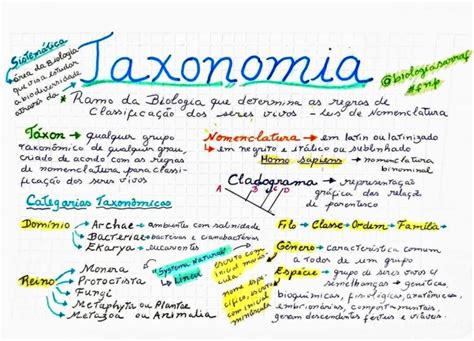 Sistemática
área da Biologia
que visa estudar
a biodiversidade
através da
Taxonomia
@biologiasarraf
#fnp
* Ramo da Biologia que determina as regras de
Classificação dos seres vivos - Leis de Nomenclatura
Táxon → qualquer grupo
taxonômico de qualquer grau,
criado de acordo com as regras
de nomenclatura para classi-
ficação dos seres vivos
Nomenclatura → em latim ou latinizado
→ em negrito e itálico ou sublinhado
Homo sapiens → nomenclatura
binominal
Cladograma → representação
gráfica das relações
de parentesco
A B C D
Categorias Taxonômicas
Domínio → Archae → ambientes com salinidade
→ Bacteriae → bactérias e cianobactérias
→ Eukarya → eucariontes
Filo - Classe - Ordem - Família
Gênero → característica comum
a todos de um grupo
Espécie → grupo de seres vivos c/
semelhanças → genéticas,
bioquímicas, fisiológicas, anatômicas,
embrionárias, comportamentais,
geram descendentes férteis e viáveis.
"Systema Naturae"
Lineu
escrito com
inicial maiús-
cula
nome espe-
cífico, escrito
com inicial
minúscula
Reino → Monera
→ Protoctista
→ Fungi
→ Metaphyta ou Plantae
→ Metazoa ou Animalia